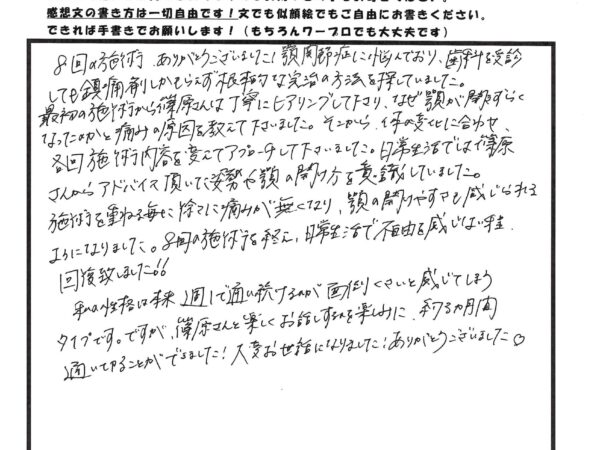 感想文の書き方は一切自由です！文でも似顔絵でもご自由にお書きください。
できれば手書きでお願いします！（もちろんワープロでも大丈夫です）
8回の施術 ありがとうございました！顎関節症に悩んでおり、歯科を受診
しても鎮痛剤しかもらえず根本的な完治の方法を探していました。
最初の施術から篠原さんは丁寧にヒアリングして下さり、なぜ顎が開きづらく
なったのかと痛みの原因を教えて下さいました。そこから、体の変化に合わせ、
各回施術内容を変えてアプローチして下さいました。日常生活では篠原
さんからアドバイス頂いた姿勢や顎の開け方を意識していました。
施術を重ねる毎に徐々に痛みが無くなり、顎の開けやすさも感じられる
ようになりました。8回の施術を終え、日常生活で不自由を感じない程
回復致しました!!
私の性格は本来 週1で通い続けるのが面倒くさいと感じてしまう
タイプです。ですが、篠原さんと楽しくお話しするを楽しみに、約2ヶ月間
通いきることができました！大変お世話になりました！ありがとうございました♡